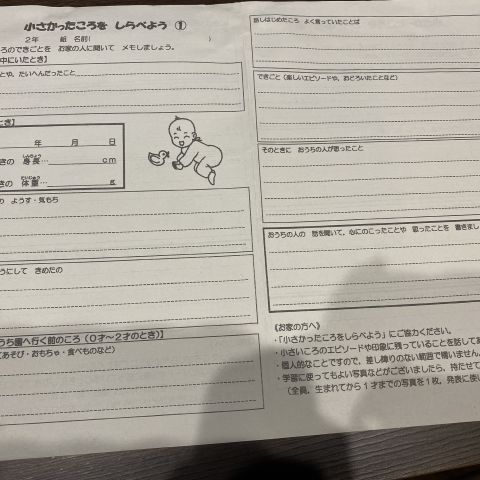 小さかったころを しらべよう ①
2年 組 名前( )
ろのできごとを お家の人に聞いて メモしましょう。
中にいたとき】
とや、たいへんだったこと
とき】
年 月 日
きの 身長… cm
しんちょう
きの 体重… g
たいじゅう
の ようす・気もち
うにして きめたの
うち園へ行く前のころ(0才〜2才のとき)】
(あそび・おもちゃ・食べものなど)
話しはじめたころ よく言っていたことば
できごと(楽しいエピソードや、おどろいたことなど)
そのときに おうちの人が思ったこと
おうちの人の 話を聞いて、心にのこったことや 思ったことを 書きまし
《お家の方へ》
・「小さかったころをしらべよう」にご協力ください。
・小さいころのエピソードや印象に残っていることを話してあ
・個人的なことですので、差し障りのない範囲で構いません。
・学習に使ってもよい写真などがございましたら、持たせて
(全員、生まれてから1才までの写真を1枚。発表に使い